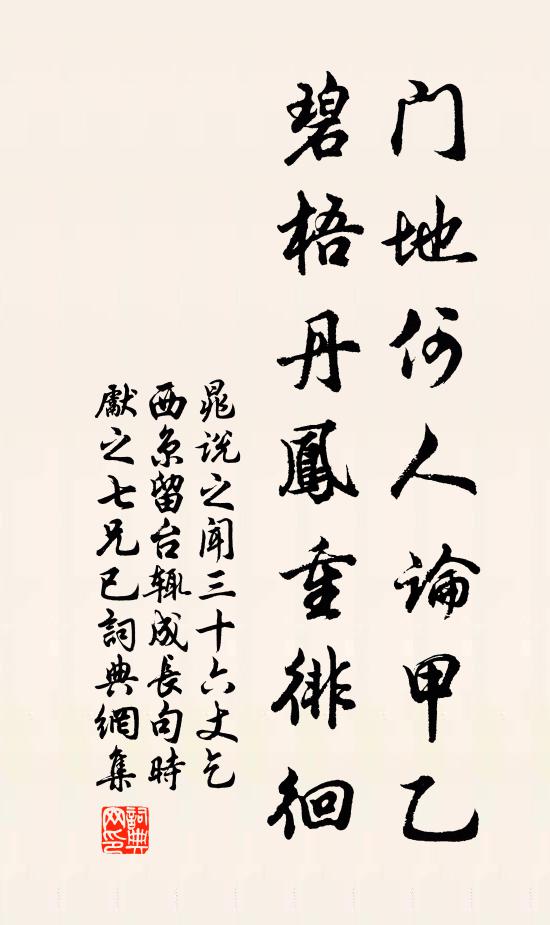 门地何人論甲乙
碧梧丹鳳重徘徊
晁说之闻三十六丈乞
西京留台辄成长句時
獻之七兄已詞典網集
詞典網印